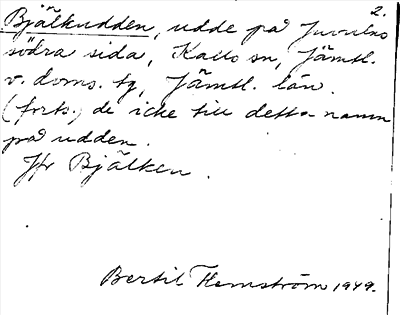 2.
Bjälkudden, udde på Juvulns
södra sida, Kalls sn, Jämtl.
v. doms. tg, Jämtl. län.
(forts.) de icke till detta namn
på udden.
Jfr Bjälken.
Bertil Flemström 1949.